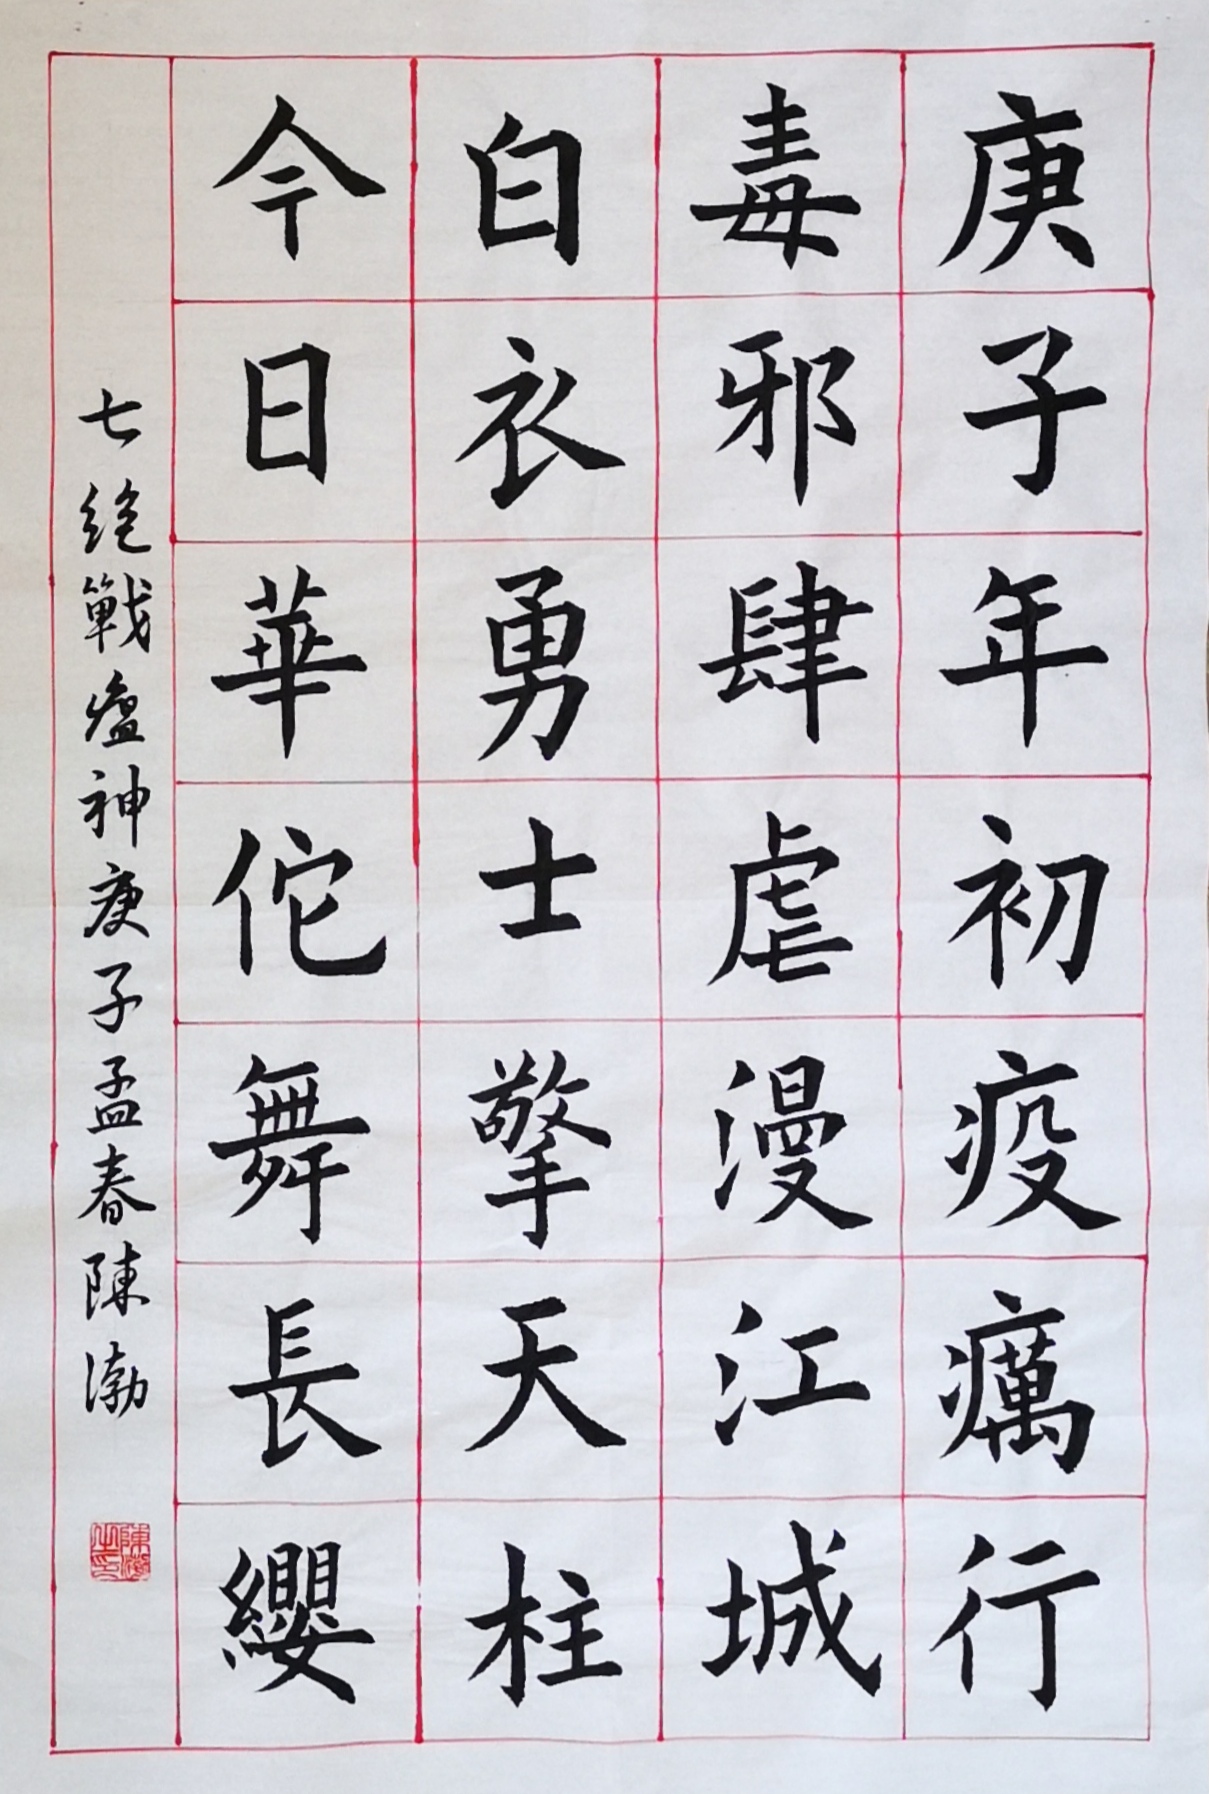 庚子年初疫癘行
毒邪肆虐漫江城
白衣勇士擎天柱
今日華佗舞長纓
七絕戰瘟神庚子孟春陳渤
陳渤之印